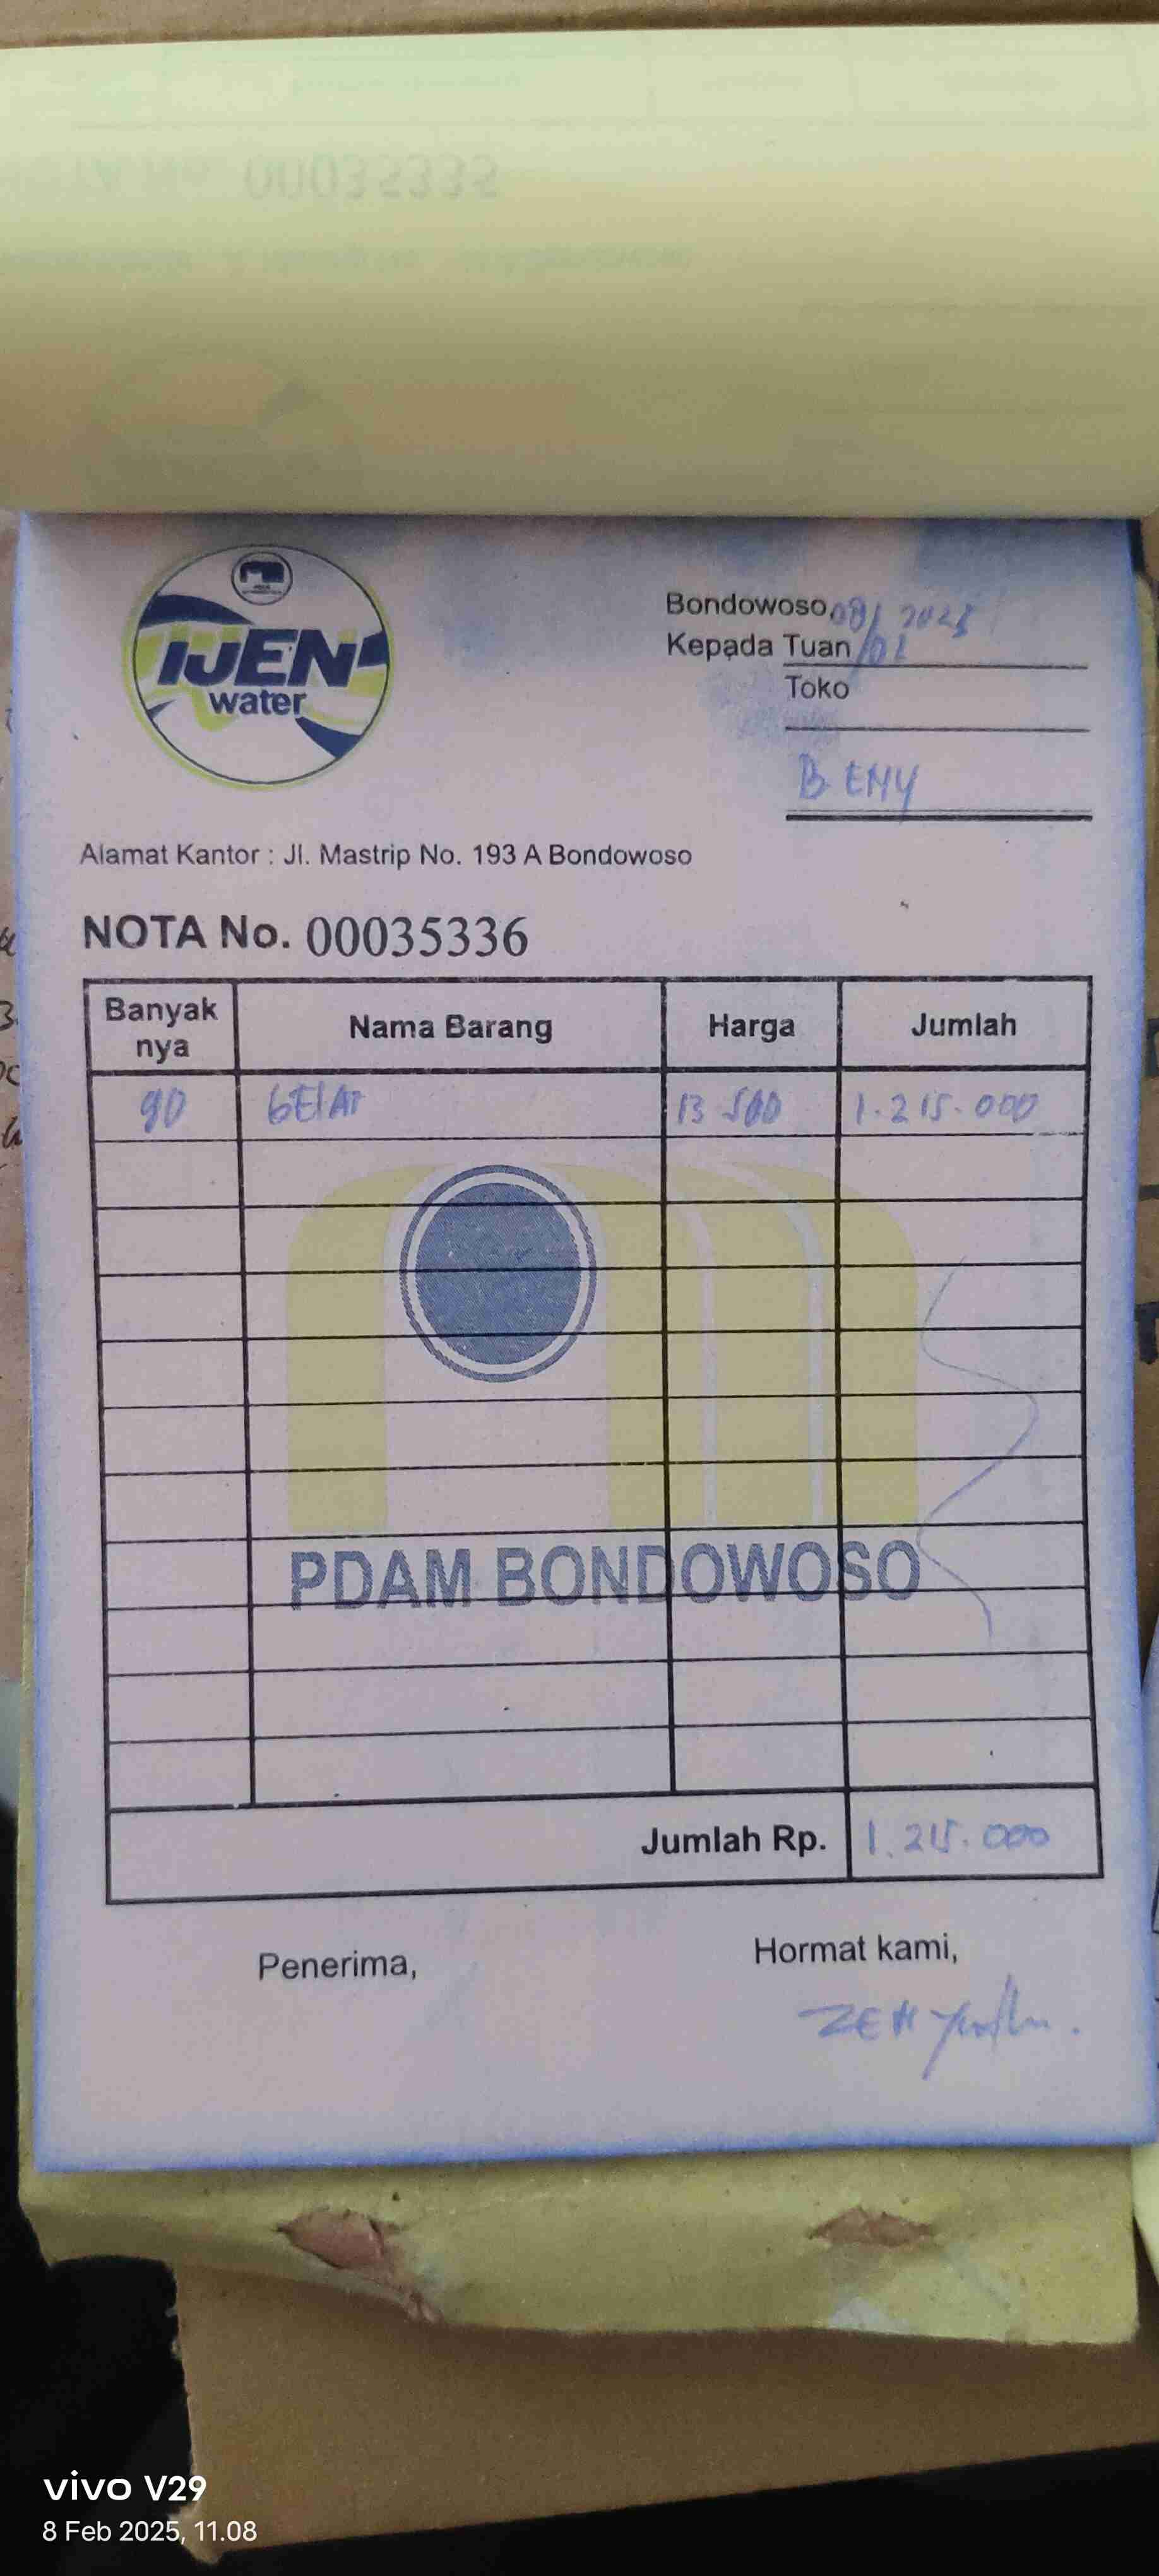 NOTA No. 00035335
IJEN
water
Bondowoso, 08/ 2025
Kepada Tuan /02
Toko
B. ENY
Alamat Kantor : Jl. Mastrip No. 193 A Bondowoso
NOTA No. 00035336
Banyak nya Nama Barang Harga Jumlah
90 GELAS 13 500 1.215.000
PDAM BONDOWOSO
Jumlah Rp. 1.215.000
Penerima, Hormat kami,
ZEN
vivo V29
8 Feb 2025, 11.08